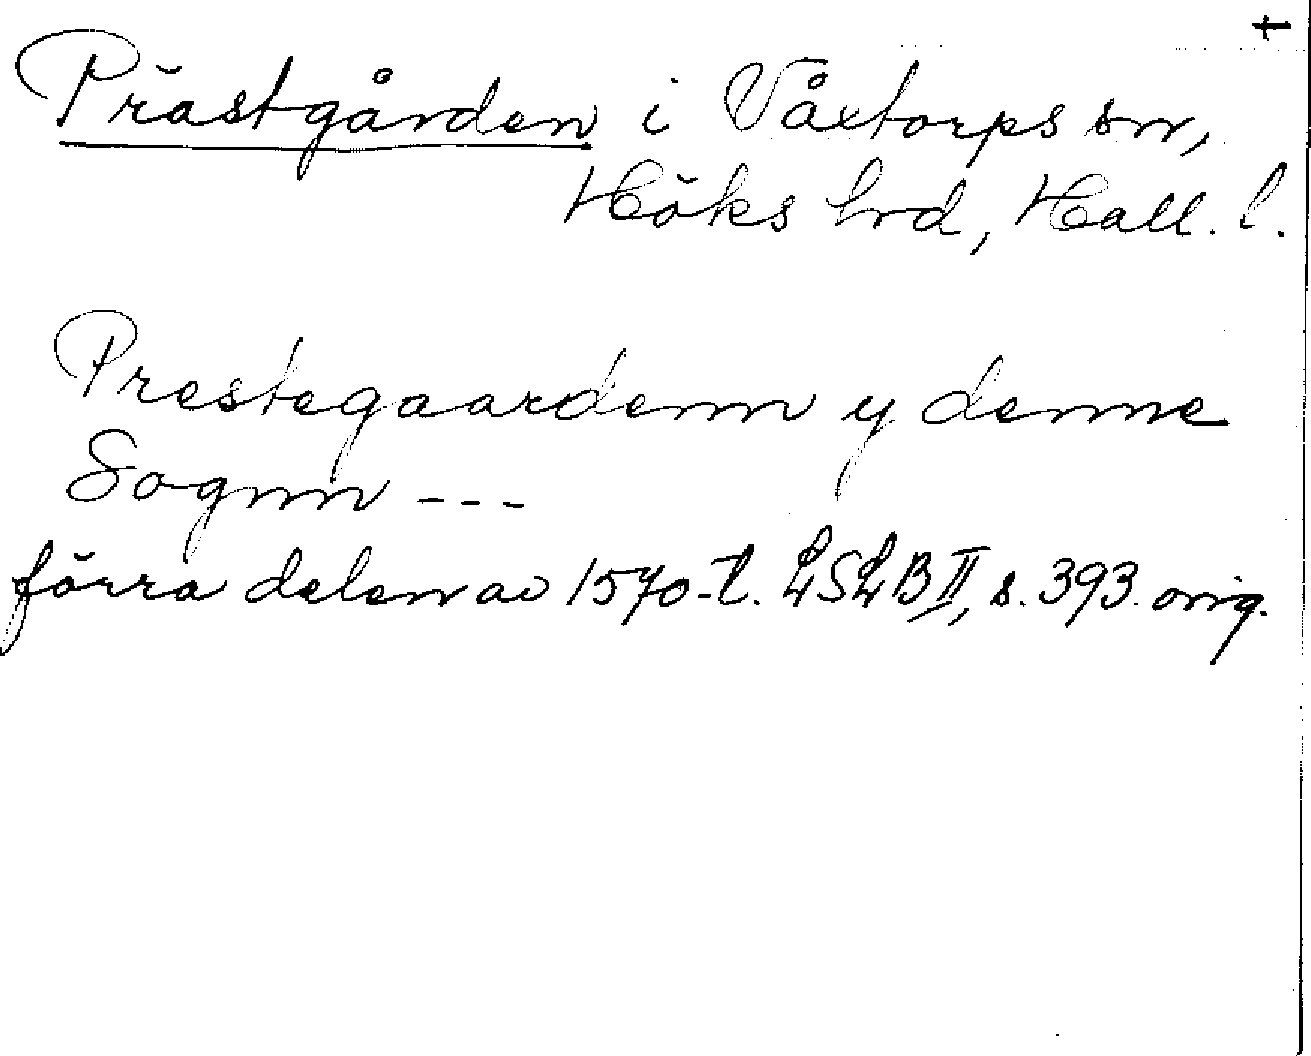 t
Prästgården i Våxtorps sn,
Höks hrd, Hall. l.
Prestegaardenn y denne
Sognn ---
förra delen av 1570-t. LSLB II, s. 393. orig.